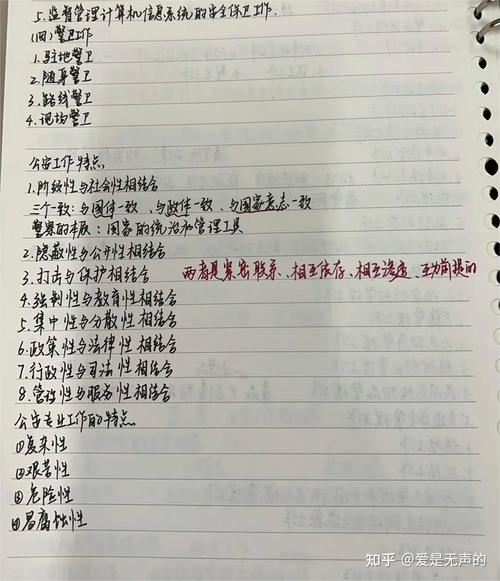 5.监督管理计算机信息系统的安全保卫工作.
(四)警卫工作
1.驻地警卫
2.随身警卫
3.路线警卫
4.现场警卫
公安工作特点。
1.阶级性与社会性相结合
三个一致:与国体一致、与政体一致、与国家意志一致
警察的本质:国家的统治和管理工具
2.隐蔽性与公开性相结合
3.打击与保护相结合 两者是紧密联系、相互依存、相互渗透、互为前提的
4.强制性与教育性相结合
5.集中性与分散性相结合
6.政策性与法律性相结合
7.行政性与司法性相结合
8.管理性与服务性相结合
公安专业工作的特点。
①复杂性
②艰苦性
③危险性
④易腐蚀性
知乎 @爱是无声的